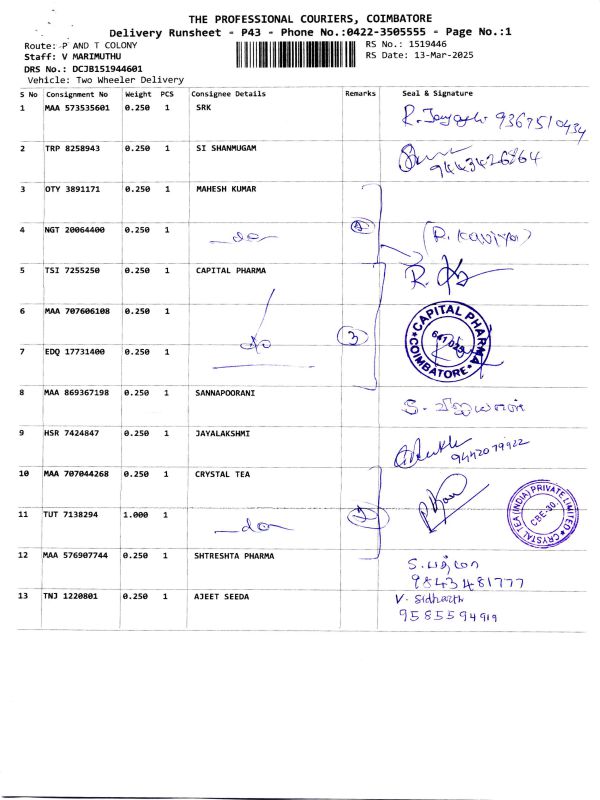 THE PROFESSIONAL COURIERS, COIMBATORE
Delivery Runsheet - P43 - Phone No.:0422-3505555 - Page No.:1
Route: P AND T COLONY
RS No.: 1519446
Staff: V MARIMUTHU
RS Date: 13-Mar-2025
DRS No.: DCJB151944601
Vehicle: Two Wheeler Delivery
S No Consignment No Weight PCS Consignee Details Remarks Seal & Signature
1 MAA 573535601 0.250 1 SRK
9367510434
2 TRP 8258943 0.250 1 SI SHANMUGAM
9443426864
3 OTY 3891171 0.250 1 MAHESH KUMAR
4 NGT 20064400 0.250 1 -do- 2
5 TSI 7255250 0.250 1 CAPITAL PHARMA
6 MAA 707606108 0.250 1
CAPITAL PHARMA
COIMBATORE
7 EDQ 17731400 0.250 1 do 3
8 MAA 869367198 0.250 1 SANNAPOORANI
9 HSR 7424847 0.250 1 JAYALAKSHMI
9442079922
10 MAA 707044268 0.250 1 CRYSTAL TEA
CRYSTAL TEA (INDIA) PRIVATE LIMITED
CBE-30
11 TUT 7138294 1.000 1 -do-
12 MAA 576907744 0.250 1 SHTRESHTA PHARMA
9843481777
13 TNJ 1220801 0.250 1 AJEET SEEDA
V. Sidharth
9585594919